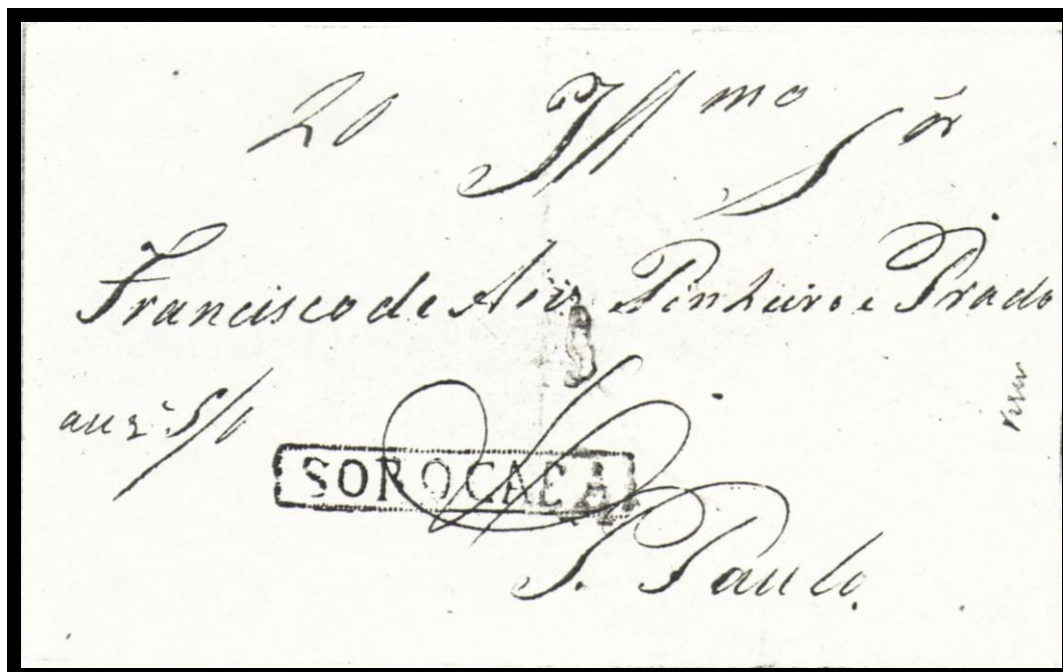 20 Illmo Sor
Francisco de Assis Pinheiro e Prado
SOROCABA
S. Paulo